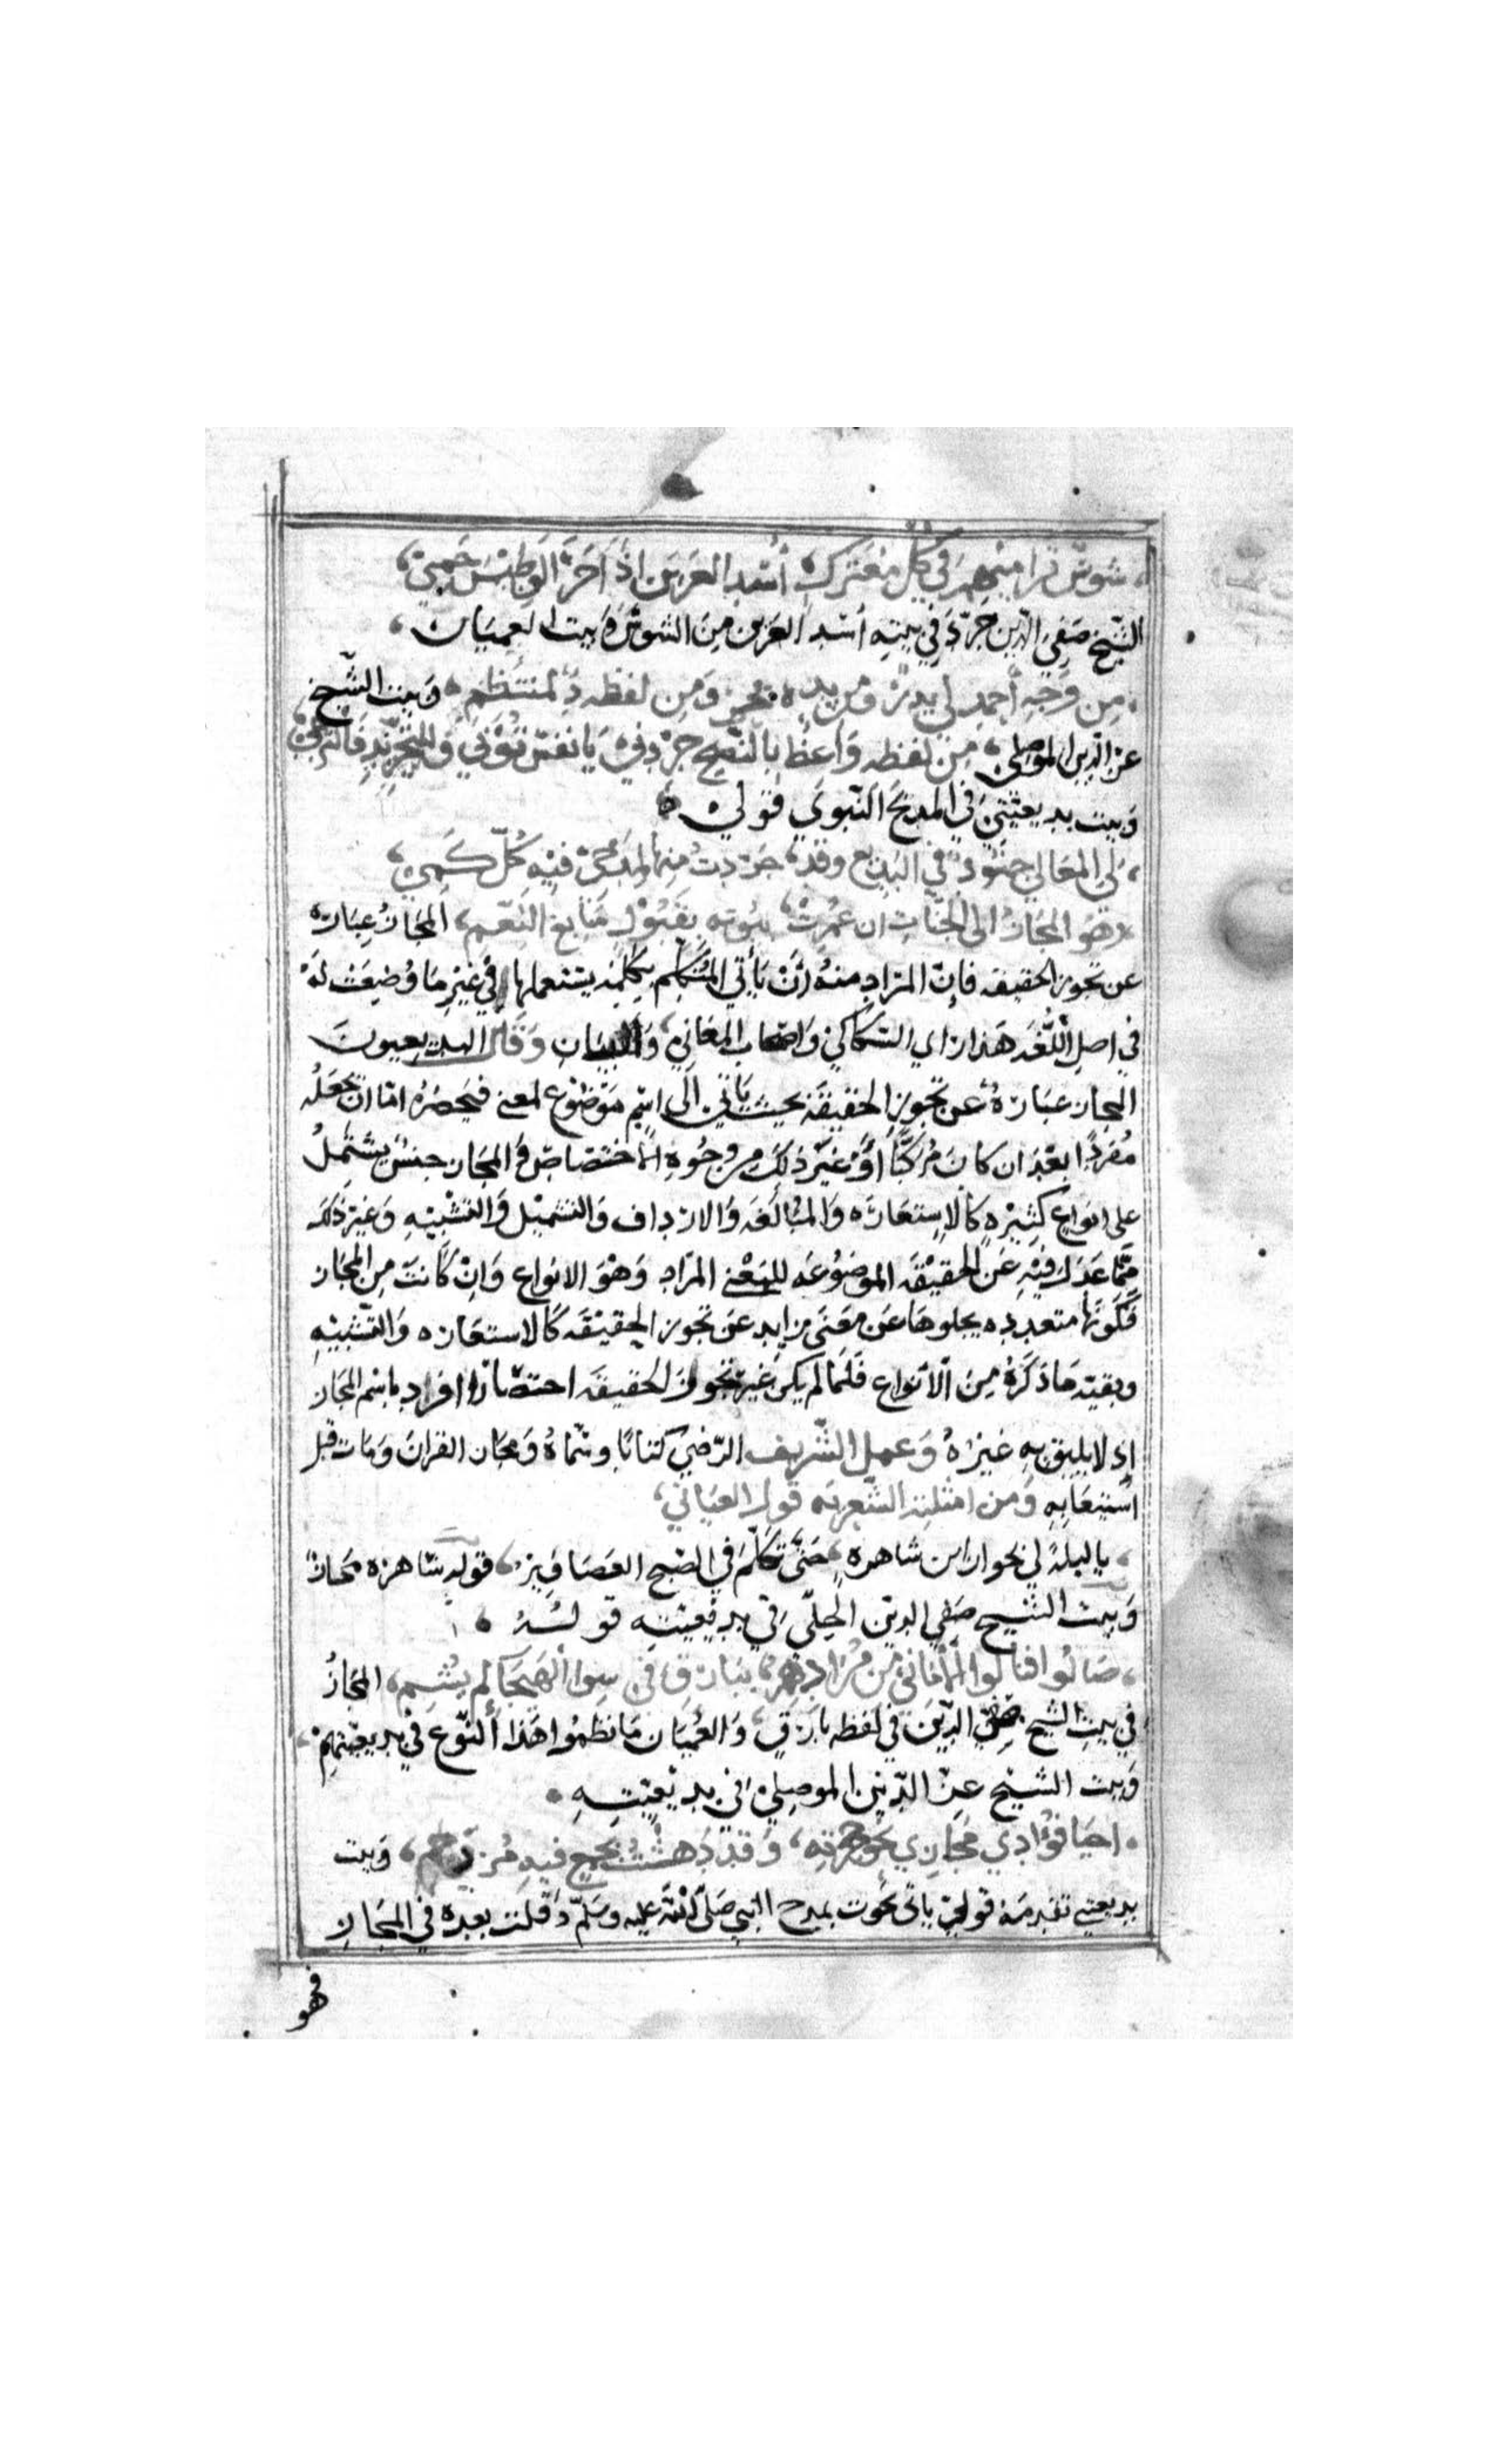 شوس ترا منهم في كل معترك أسد العرين اذا حر الوطيس حمي
الشيخ صفي الدين جرد في بيته أسد العرين من الشوس وبيت العميان
من وجه أحمد لي بدر ومن يده بحر ومن لفظه در لمنتظم وبيت الشيخ
عز الدين الموصلي من لفظه واعظ بالنصح جردني يا نفس توبي وللتجريد فالتزمي
وبيت بديعيتي في المديح النبوي قولي
لي المعاني جنود في البديع وقد جردت منها لمدحي فيه كل كمي
وهو المجاز الى الجنات ان عمرت بيوته بقبول سابغ النعم المجاز عبارة
عن تجوز الحقيقه فإن المراد منه أن يأتي المتكلم بكلمه يستعملها في غير ما وضعت له
في اصل اللغه هذا راي السكاكي واصحاب المعاني والبيان وقال البديعيون
المجاز عبارة عن تجويز الحقيقة بحيث يأتي الى اسم موضوع لمعنى فيحصره اما ان يجعله
مفردا بعد ان كان مركبا أو غير ذلك من وجوه الاختصاص والمجاز جنس يشتمل
على انواع كثيره كالاستعاره والمبالغه والارداف والتمثيل والتشبيه وغير ذلك
مما عدل فيه عن الحقيقه الموضوعه للمعنى المراد وهو الانواع وان كانت من المجاز
فكونها متعدده يجلوها عن معنى زايد عن تجوز الحقيقه كالاستعاره والتشبيه
وبقيه ما ذكره من الانواع فلما لم يكن غير تجوز الحقيقه اختصارا افراد باسم المجاز
اذ لا يليق به غيره وعمل الشريف الرضي كتابا وسماه ومجاز القران ومات قبل
استيعابه ومن امثلته الشعريه قول العتابي
يا ليلة لي بحوارين شاهره حتى تكلم في الصبح العصافير قوله شاهره مجاز
وبيت الشيخ صفي الدين الحلي في بديعيته قوله
صالوا فنالوا الأماني من مرادهم ببارق في سوا الهيجا لم يشم المجاز
في بيت الشيخ صفي الدين في لفظه بارق والعميان ما نظموا هذا النوع في بديعيتهم
وبيت الشيخ عز الدين الموصلي في بديعيته
احيا فؤادي مجازي نحو حجرته وقد دهشت بجمع فيه مزدحم وبيت
بديعيتي تقدمه قولي يأتى بحوت بمدح النبي صلى الله عليه وسلم وقلت بعده في المجاز
فهو